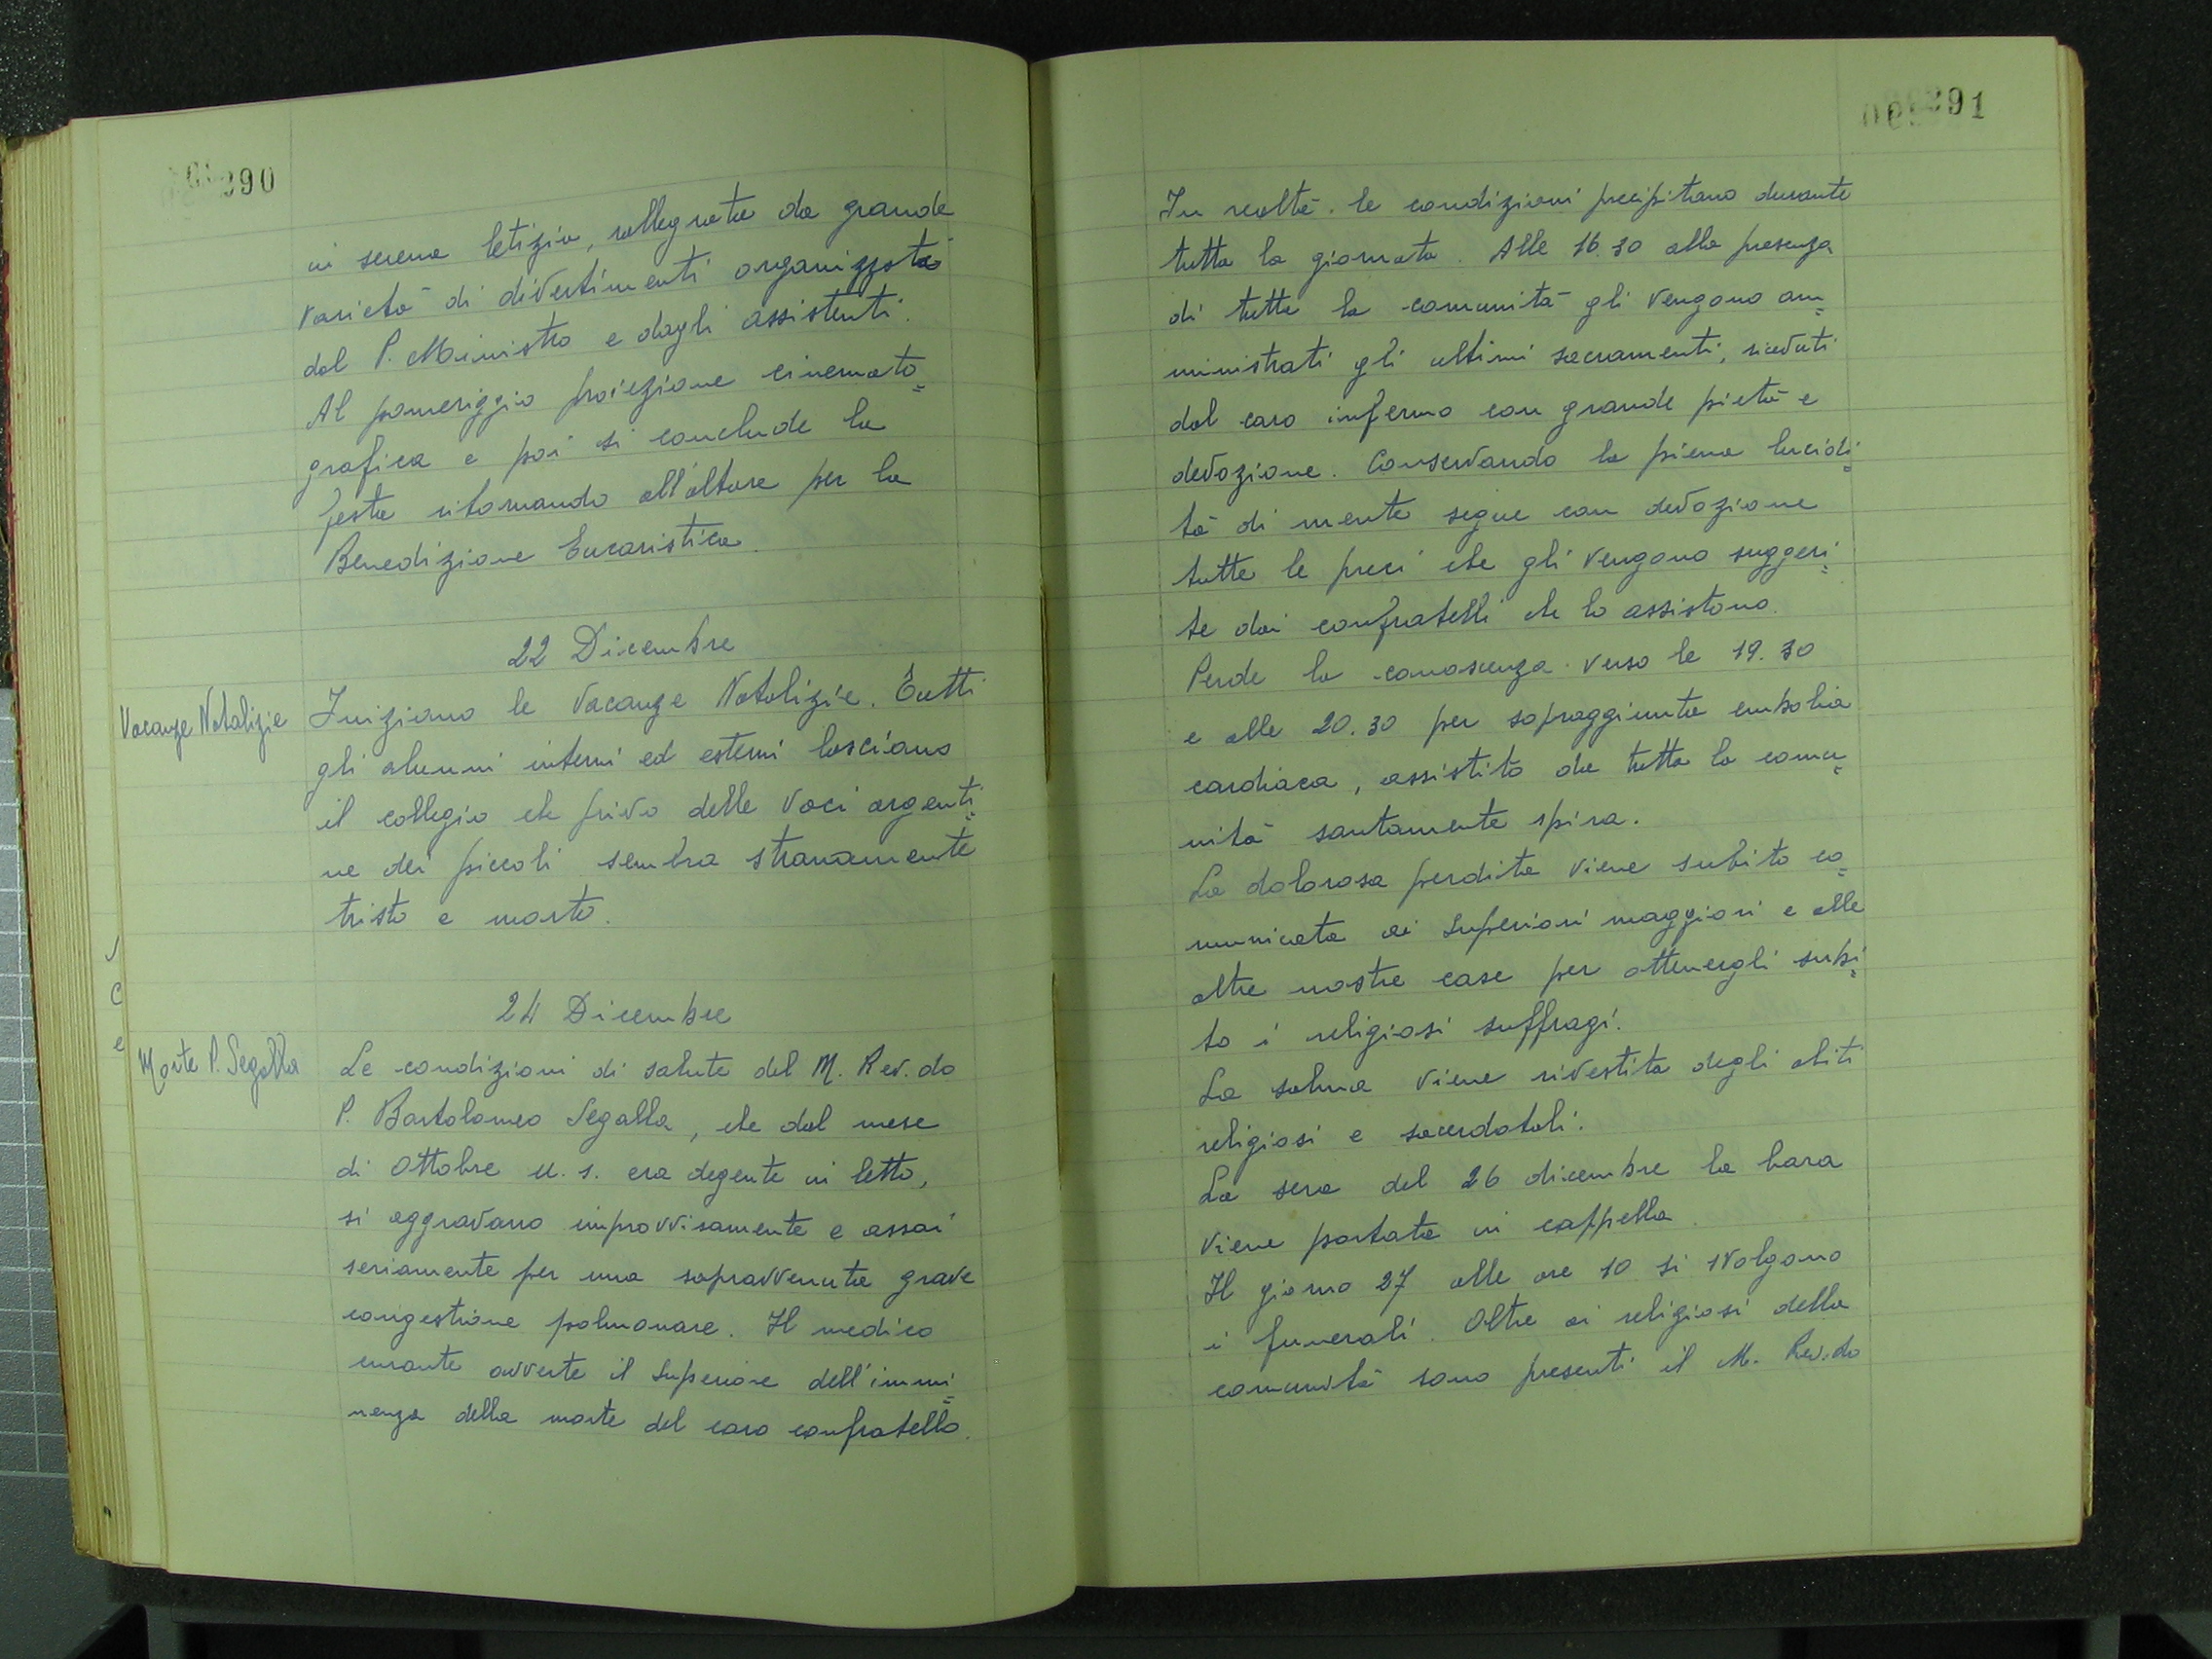 290
in serena letizia, rallegrata da grande
varietà di divertimenti organizzata
dal P. Ministro e dagli assistenti.
Al pomeriggio proiezione cinemato=
grafica e poi si conclude la
festa ritornando all'altare per la
Benedizione Eucaristica.
22 Dicembre
Vacanze Natalizie
Iniziano le Vacanze Natalizie. Tutti
gli alunni interni ed esterni lasciano
il collegio che privo delle voci argenti=
ne dei piccoli sembra stranamente
tristo e morto.
24 Dicembre
Morte P. Segalla
Le condizioni di salute del M. Rev.do
P. Bartolomeo Segalla, che dal mese
di Ottobre u. s. era degente in letto,
si aggravano improvvisamente e assai
seriamente per una sopravvenuta grave
congestione polmonare. Il medico
curante avverte il Superiore dell'immi=
nenza della morte del caro confratello.
291
In realtà le condizioni precipitano durante
tutta la giornata. Alle 16.30 alla presenza
di tutta la comunità gli vengono am=
ministrati gli ultimi sacramenti, ricevuti
dal caro infermo con grande pietà e
devozione. Conservando la piena lucidi=
tà di mente segue con devozione
tutte le preci che gli vengono suggeri=
te dai confratelli che lo assistono.
Perde la conoscenza verso le 19.30
e alle 20.30 per sopraggiunta embolia
cardiaca, assistito da tutta la comu=
nità santamente spira.
La dolorosa perdita viene subito co=
municata ai Superiori maggiori e alle
altre nostre case per ottenergli subi=
to i religiosi suffragi.
La salma viene rivestita degli abiti
religiosi e sacerdotali.
La sera del 26 dicembre la bara
viene portata in cappella.
Il giorno 27 alle ore 10 si svolgono
i funerali. Oltre ai religiosi della
comunità sono presenti il M. Rev.do